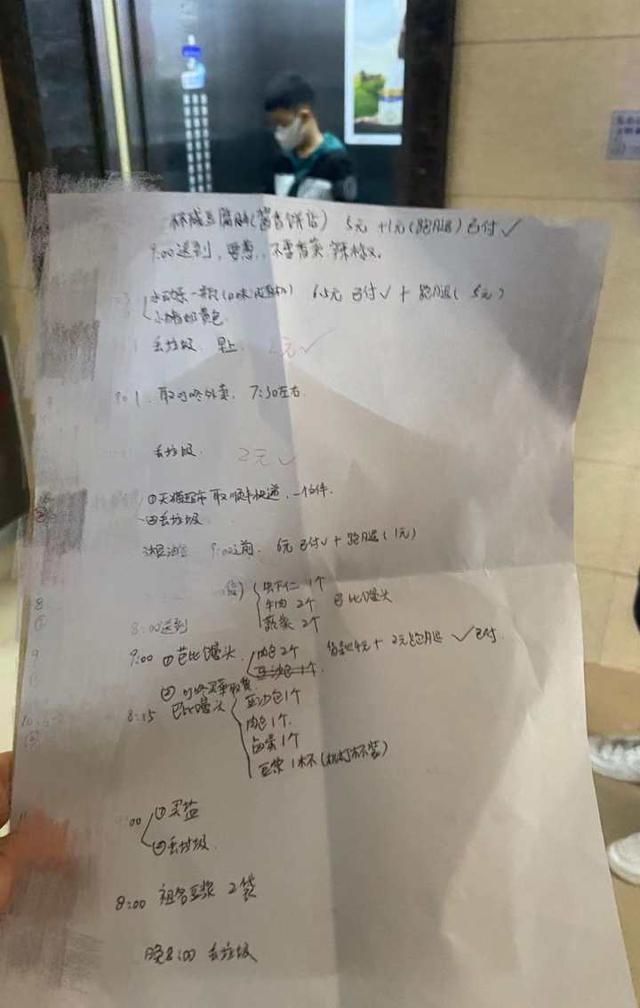 杯咸豆腐脑(酱香饼店) 5元 +1元(跑腿)已付✓
9:00送到, 要葱, 不要香菜 辣
一 6.5元 已付✓ + 跑腿( 5元)
小猪奶黄包
丢垃圾 早上 2元✓
1. 取叮咚外卖, 7:30左右
丢垃圾 2元✓
①天猫超市 取顺丰快递, 一个件
②丢垃圾
9:00之前 6元 已付✓ + 跑腿(1元)
虾仁 1个
牛肉 2个 巴比馒头
蔬菜 2个
8:00送到
9:00 ①芭比馒头 肉包 2个 4元 + 2元跑腿 ✓已付
豆沙包 1个
②叮咚买菜取货
8:15 巴比馒头 豆沙包 1个
肉包 1个
卤蛋 1个
豆浆 1杯(机打杯装)
:00 ①买盐
②丢垃圾
8:00 祖名豆浆 2袋
晚8:00 丢垃圾